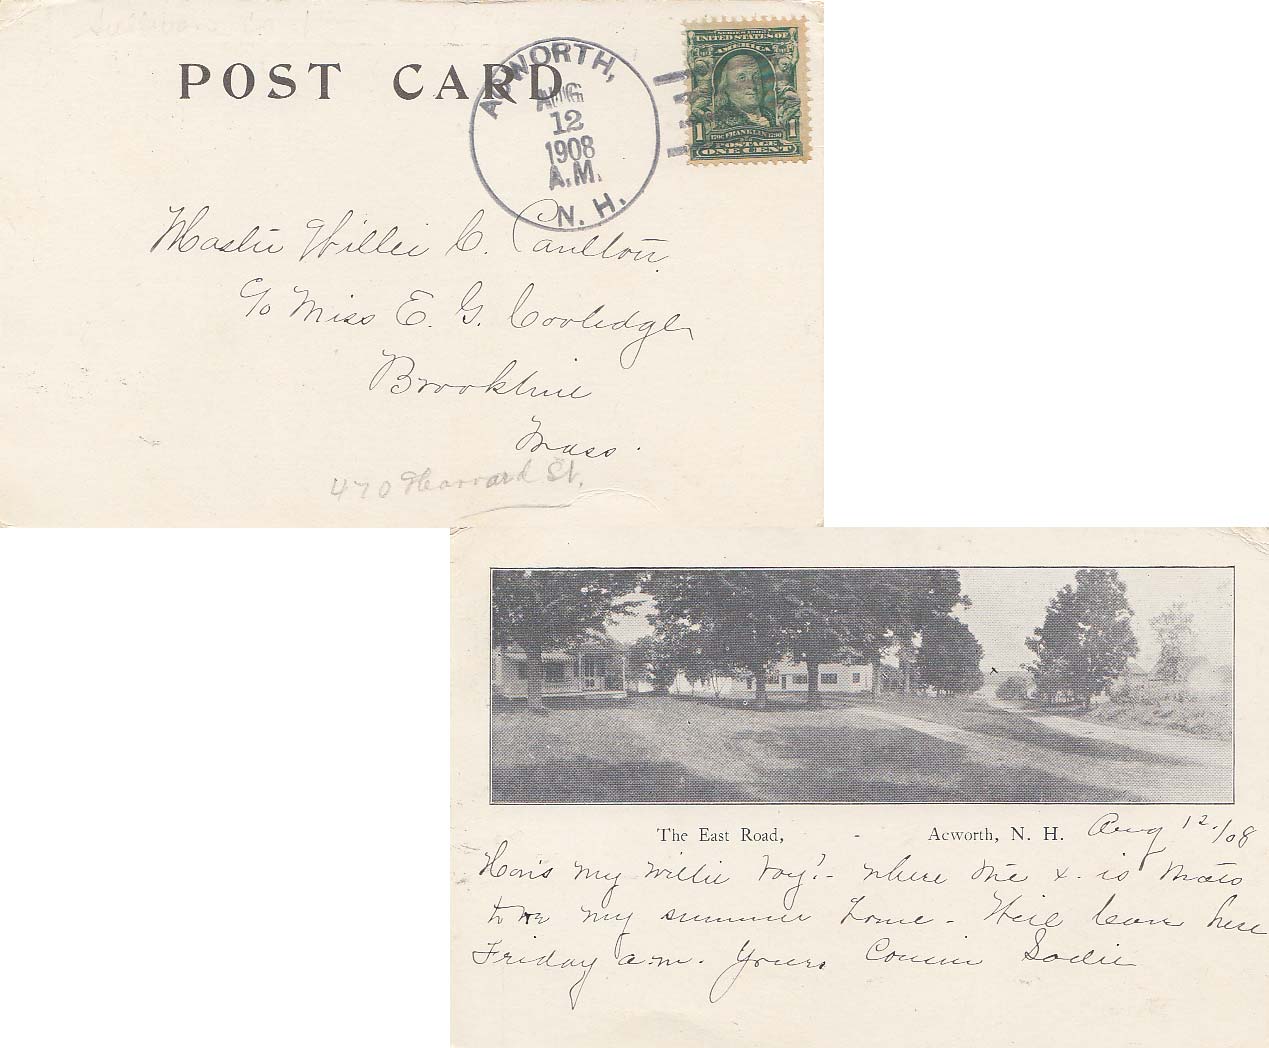 POST CARD
ACWORTH,
AUG
12
1908
A.M.
N. H.
SERIES 1902
UNITED STATES OF
AMERICA
1 FRANKLIN 1
POSTAGE
ONE CENT
Master Willie C. Carlton
c/o Miss E. G. Cooledge
Brookline
Mass.
470 Harvard St.
The East Road, - Acworth, N. H. Aug 12./08
How's my willie boy? - where the x. is that's
to be my summer home - We'll leave here
Friday a.m. Yours Cousin Sadie